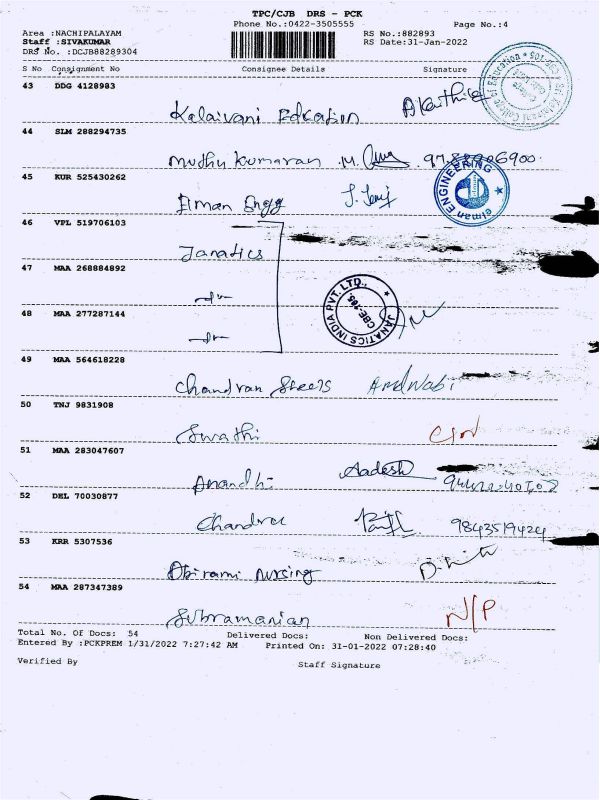 TPC/CJB DRS - PCK
Phone No.:0422-3505555 Page No.:4
Area :NACHIPALAYAM RS No.:882893
Staff :SIVAKUMAR RS Date:31-Jan-2022
DRS No. :DCJB88289304
S No Consignment No Consignee Details Signature
43 DDG 4128983
Kalaivani Edcation
44 SLM 288294735
Muthu Kumaran M.
45 KUR 525430262
Elman Engg
elman ENGINEERING
46 VPL 519706103
Janatics
47 MAA 268884892
JANATICS INDIA PVT. LTD.,
48 MAA 277287144
49 MAA 564618228
Chandran Steels
50 TNJ 9831908
Swathi
51 MAA 283047607
Anandhi Aadesh
52 DEL 70030877
9843519424
53 KRR 5307536
Abirami Nursing
54 MAA 287347389
Subramanian N/P
Total No. Of Docs: 54 Delivered Docs: Non Delivered Docs:
Entered By :PCKPREM 1/31/2022 7:27:42 AM Printed On: 31-01-2022 07:28:40
Verified By Staff Signature